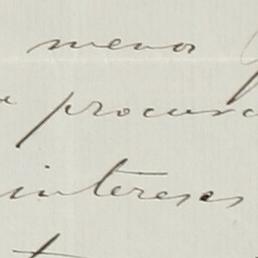 menor
procura
intereses